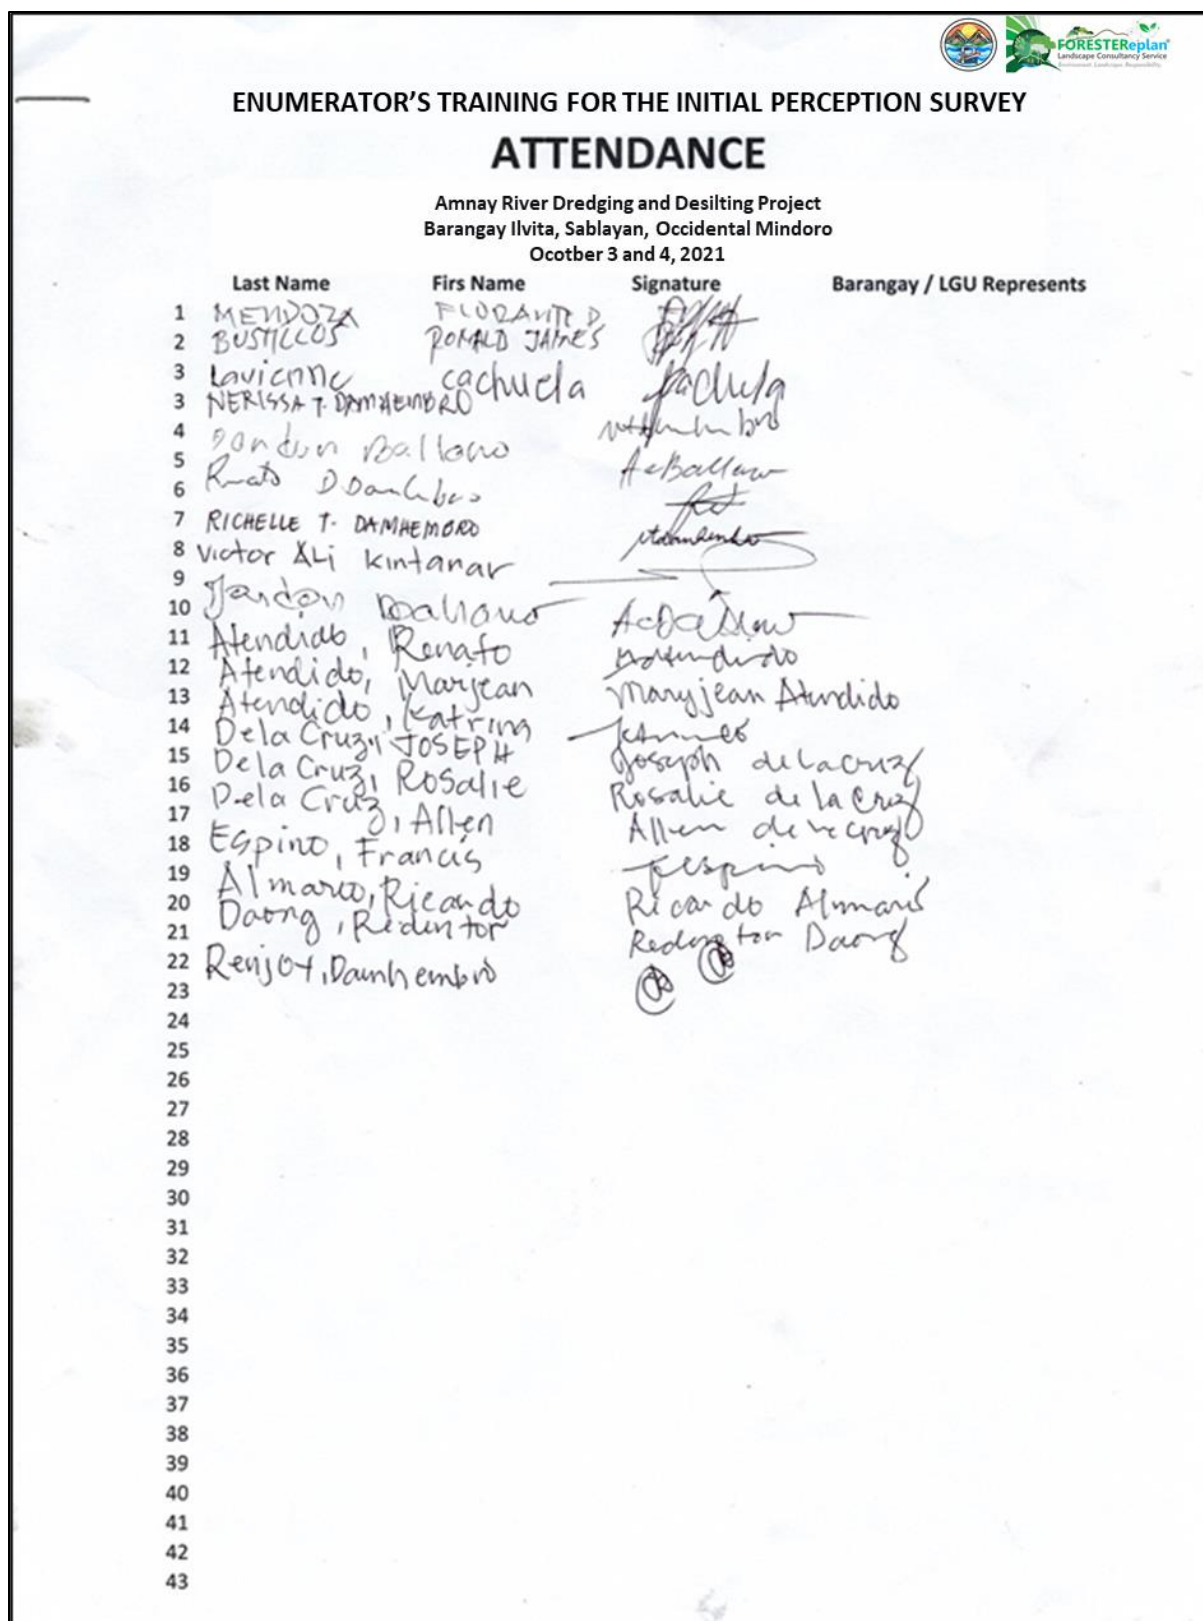 FORESTEReplan
Landscape Consultancy Service
Environment. Landscape. Responsibility.
ENUMERATOR'S TRAINING FOR THE INITIAL PERCEPTION SURVEY
ATTENDANCE
Amnay River Dredging and Desilting Project
Barangay Ilvita, Sablayan, Occidental Mindoro
Ocotber 3 and 4, 2021
Last Name Firs Name Signature Barangay / LGU Represents
1 MENDOZA FLORANTE D
2 BUSTILLOS RONALD JAMES
3 Lavienne cachuela
3 NERISSA T. DAMHEMBRO
4
5 Ballano
6
7 RICHELLE T. DAMHEMBRO
8 Victor ALi Kintanar
9
10 Ballano
11 Atendido, Renato
12 Atendido, Marjean Maryjean Atendido
13 Atendido, Katrina
14 Dela Cruz, JOSEPH Joseph delacruz
15 Dela Cruz, Rosalie Rosalie de la Cruz
16 Dela Cruz, Allen Allen
17
18 Espino, Francis
19 Almario, Ricardo Ricardo
20 Daong, Redentor Daong
21
22 Renjoy, Damhembro
23
24
25
26
27
28
29
30
31
32
33
34
35
36
37
38
39
40
41
42
43